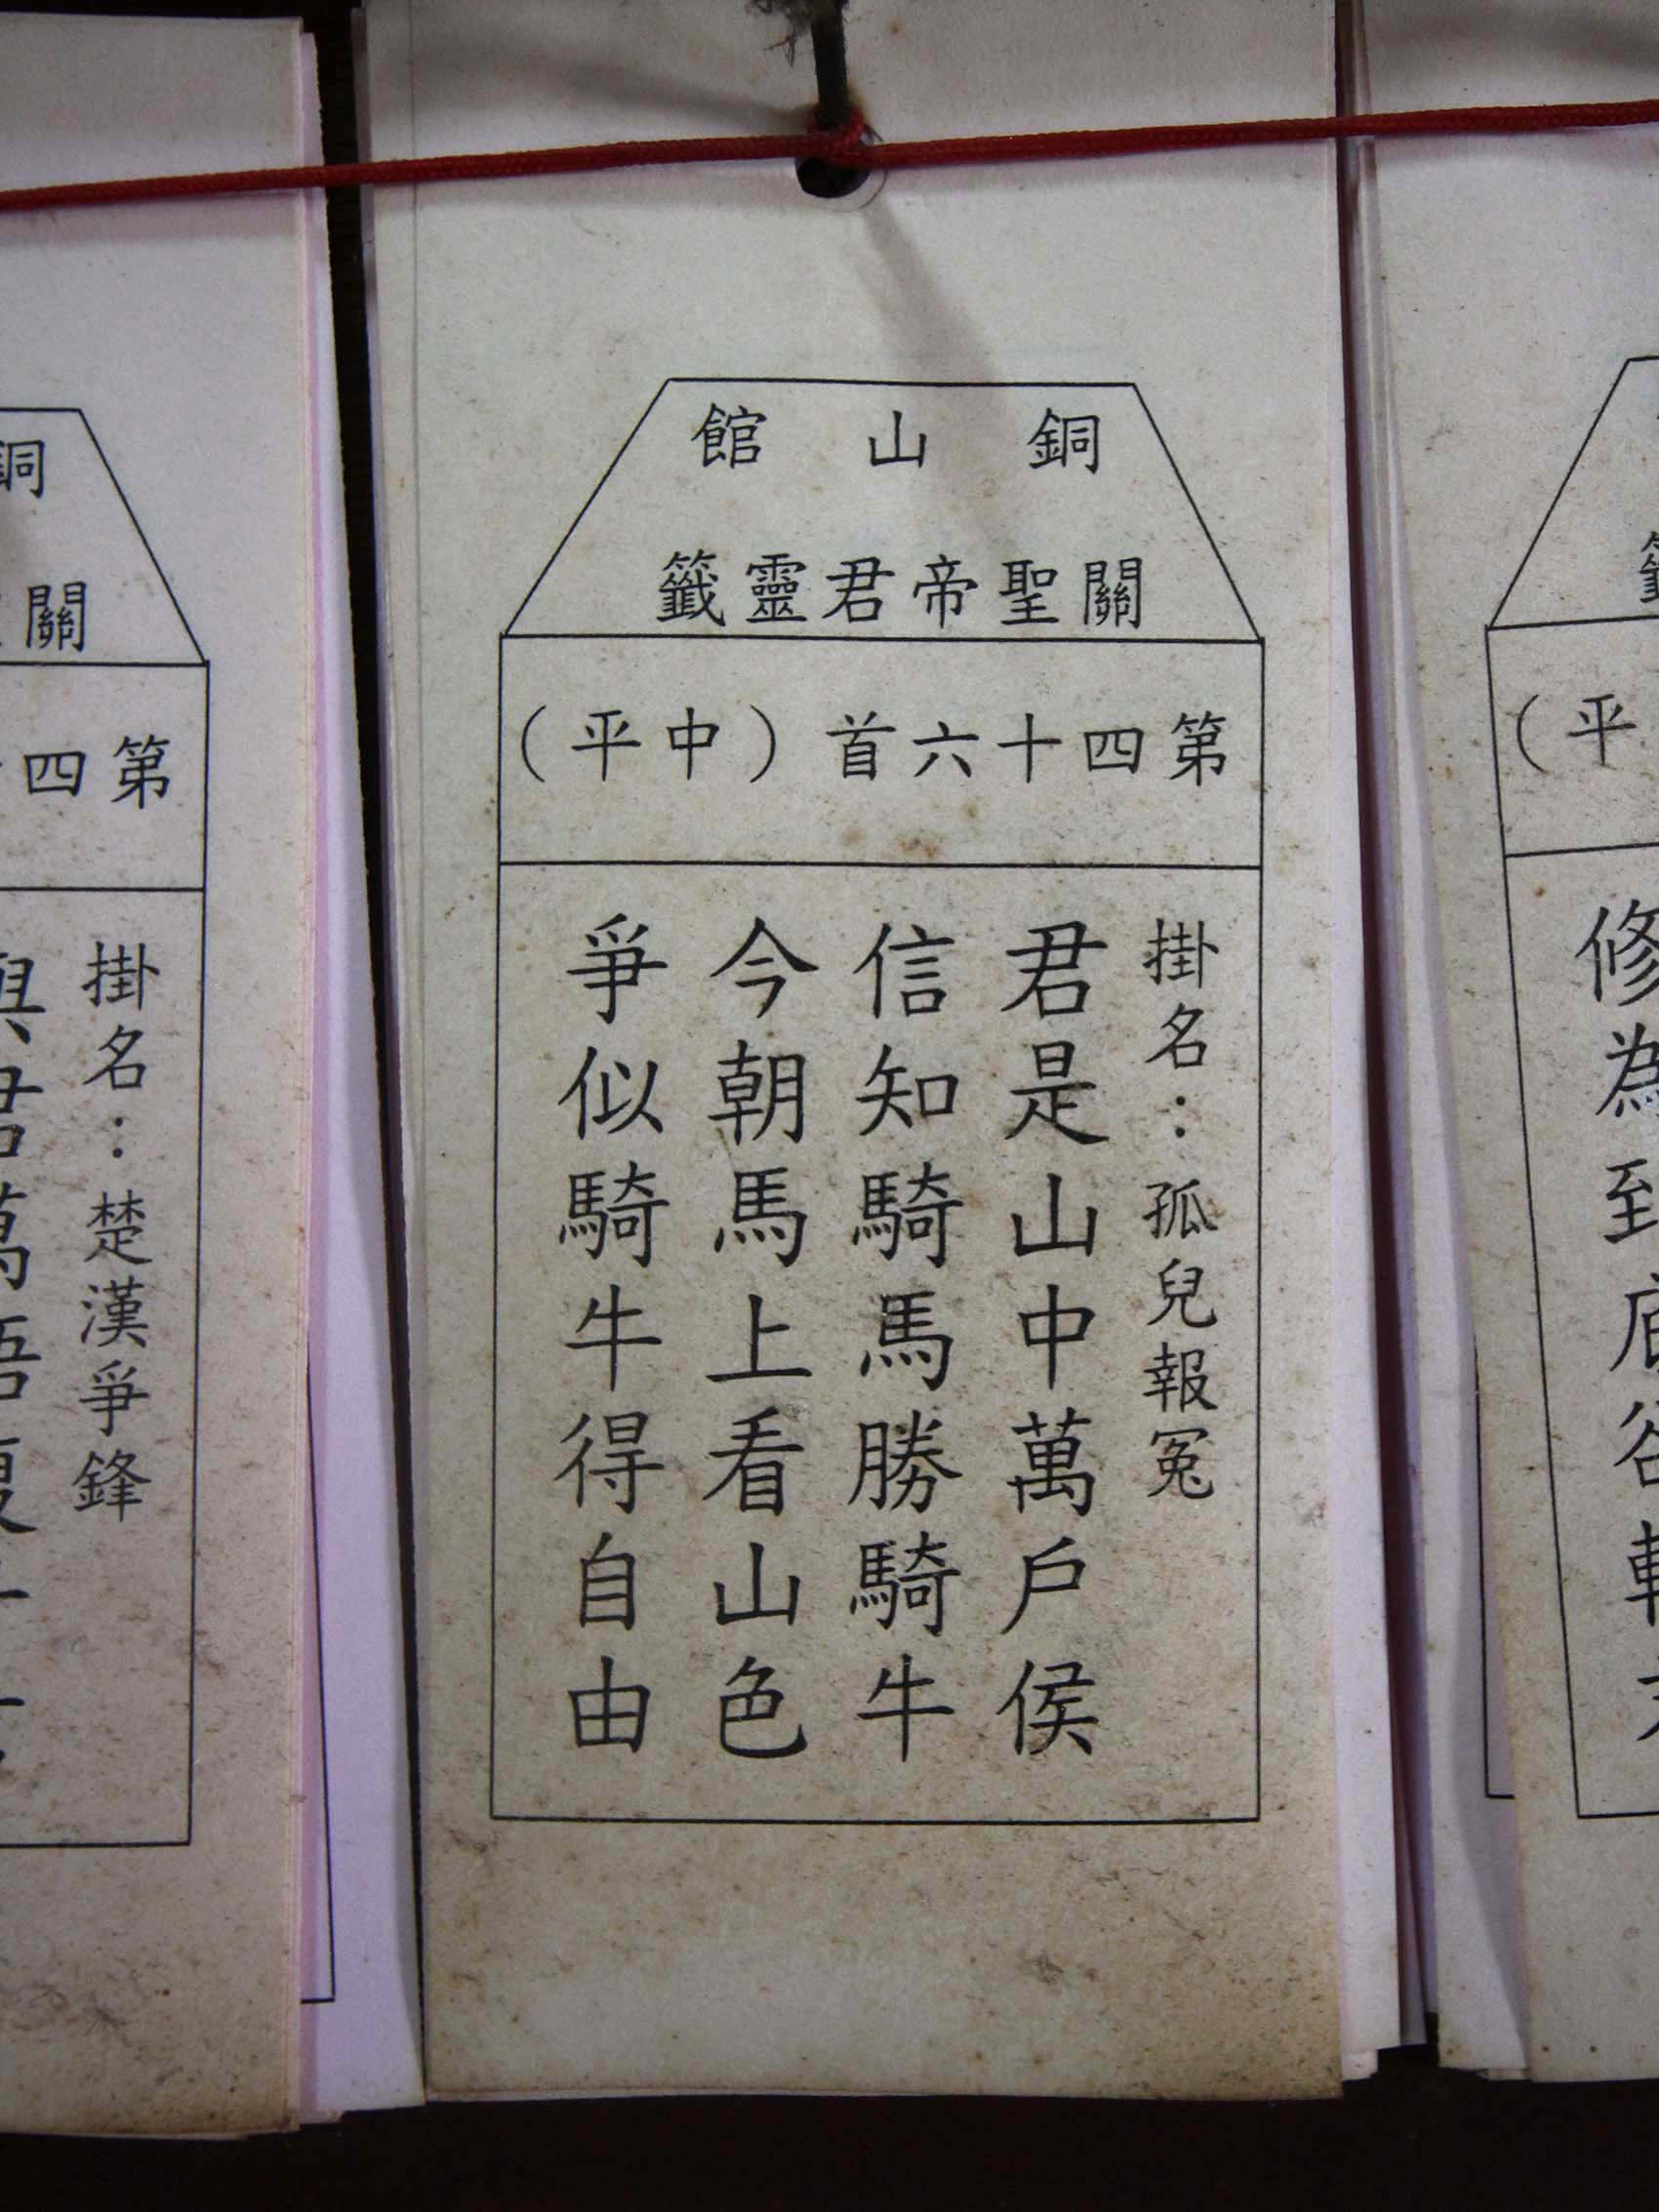 銅山館
關聖帝君靈籤
第四十六首（中平）
掛名：孤兒報冤
君是山中萬戶侯
信知騎馬勝騎牛
今朝馬上看山色
爭似騎牛得自由
銅
關
第四
掛名：楚漢爭鋒
（平
修為到底